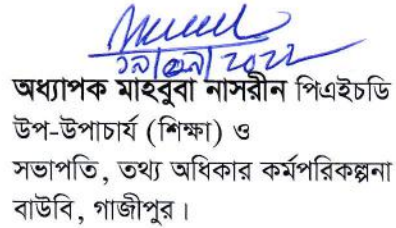 অধ্যাপক মাহবুবা নাসরীন পিএইচডি
উপ-উপাচার্য (শিক্ষা) ও
সভাপতি, তথ্য অধিকার কর্মপরিকল্পনা
বাউবি, গাজীপুর।